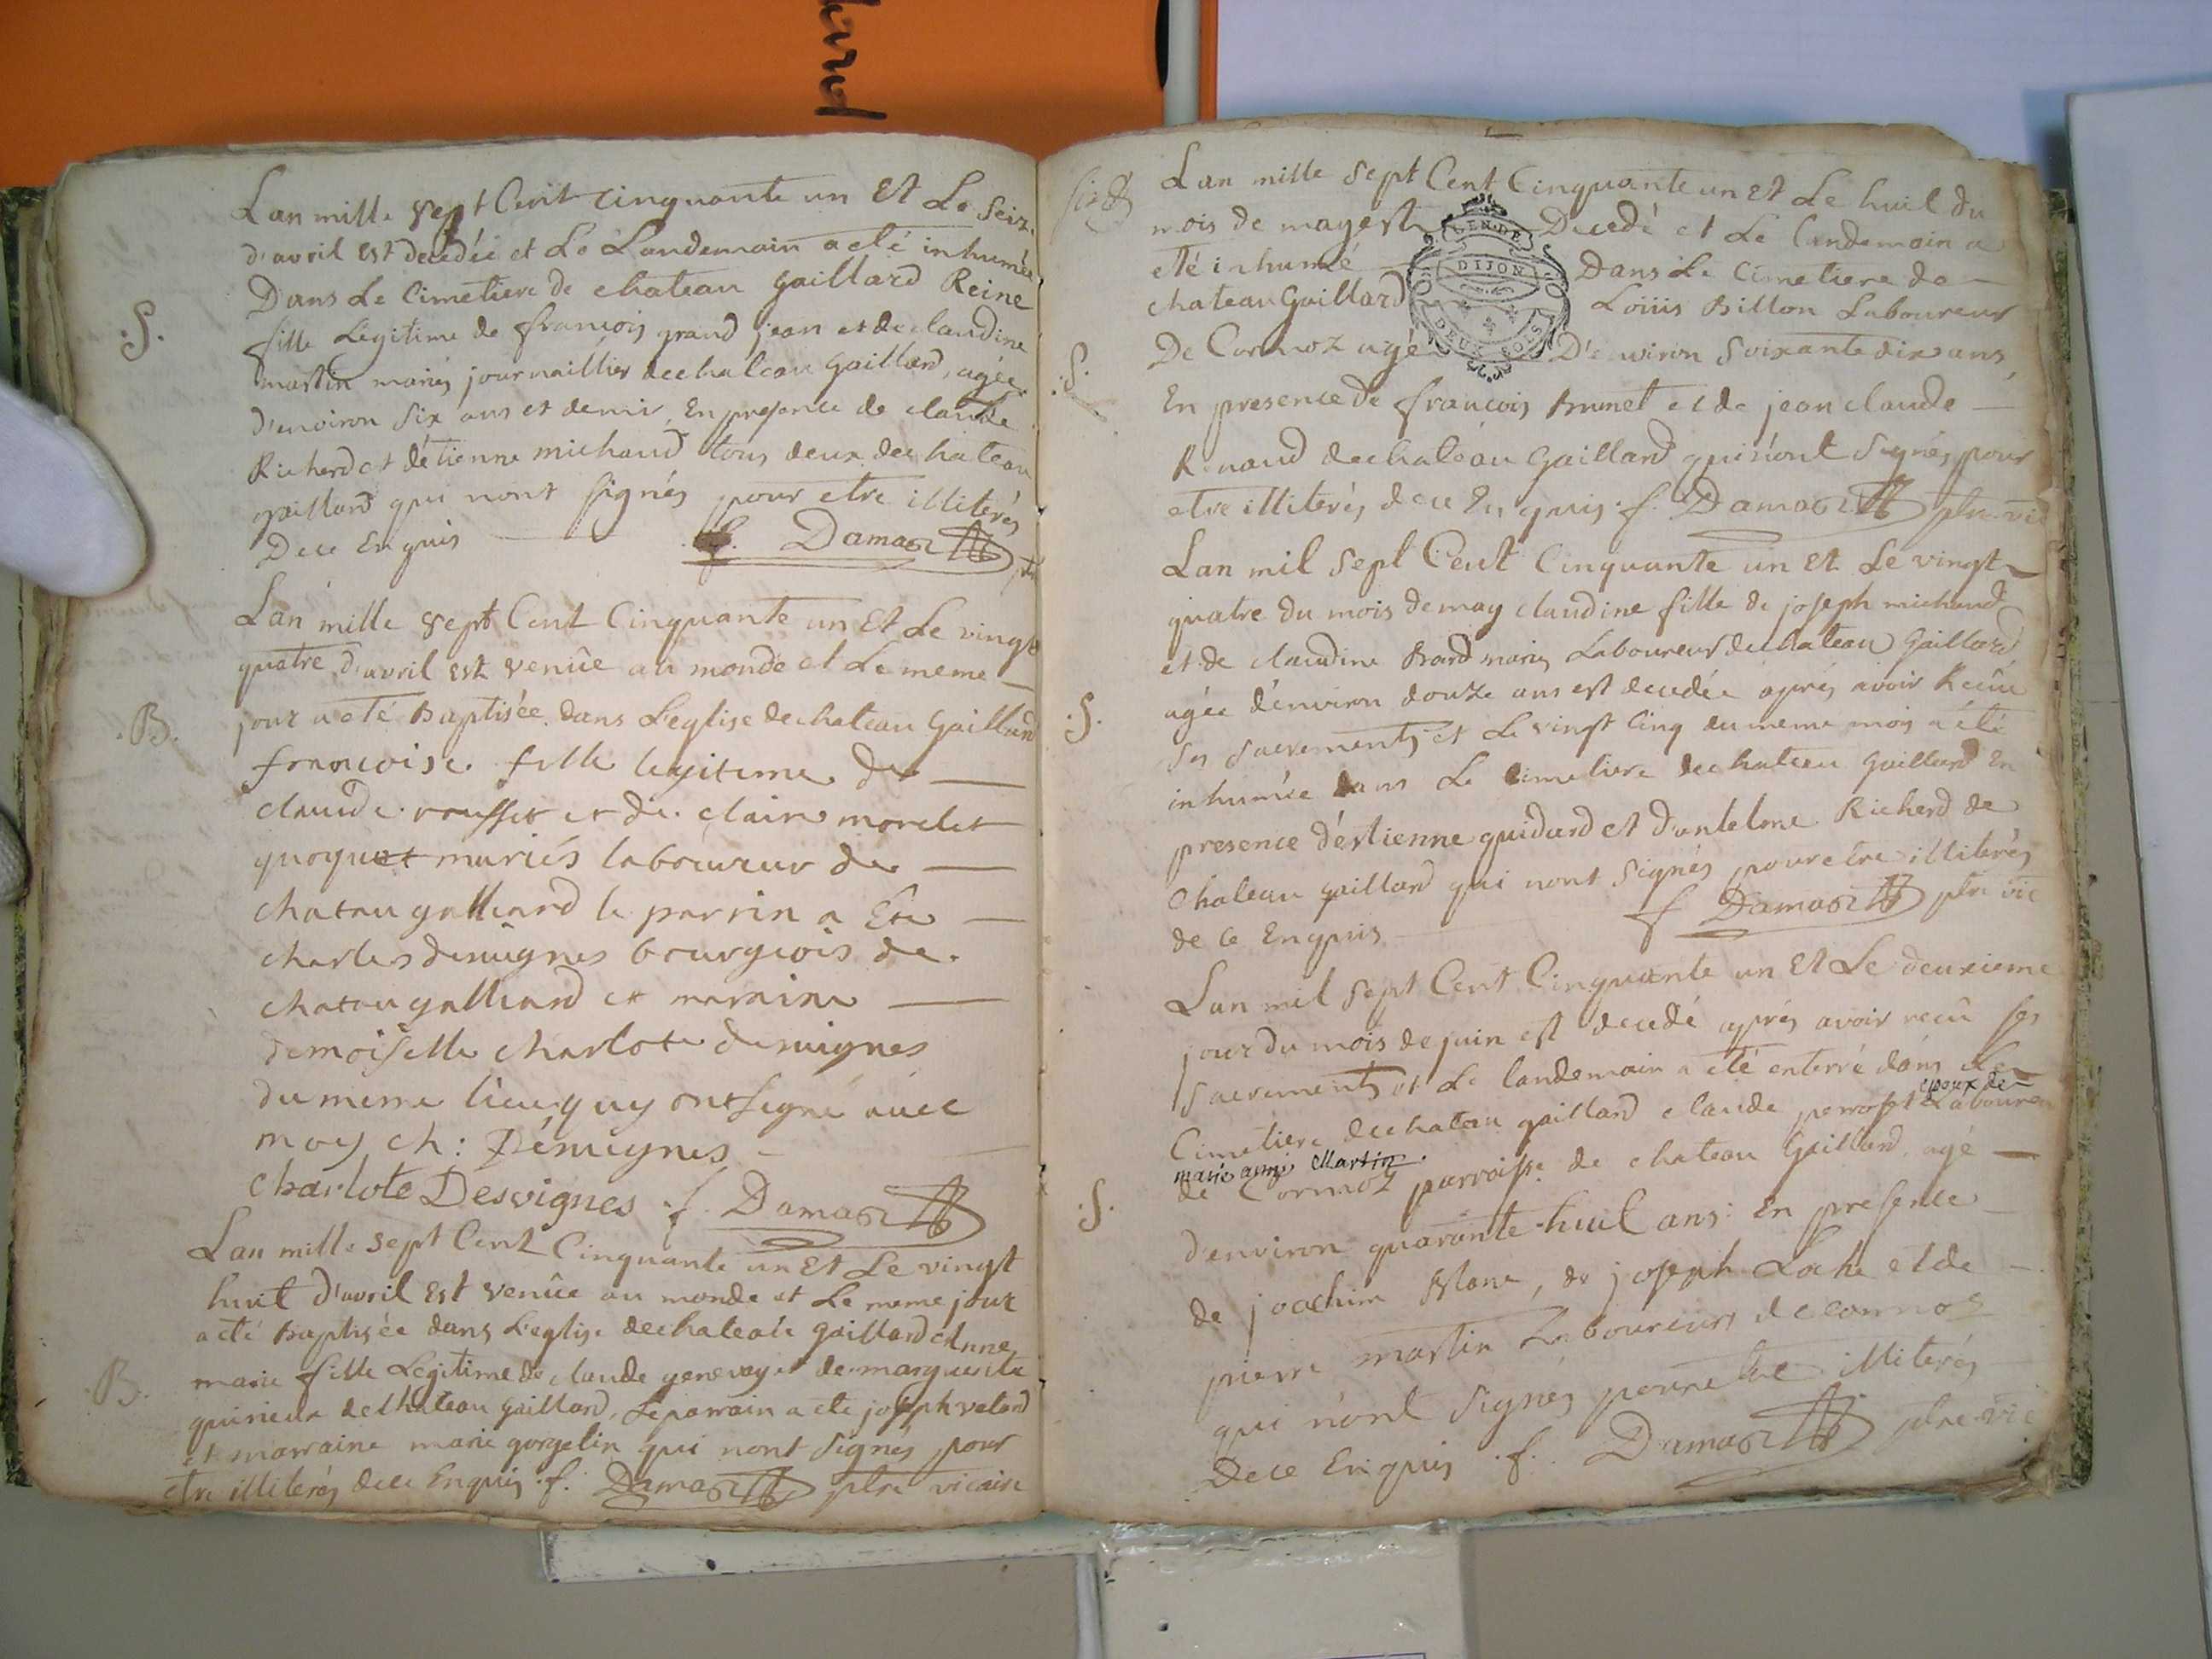 Lan mille sept Cent cinquante un Et Le Seiz.
d'avril est decedée et Le Landemain a eté inhumée
Dans Le Cimetiere de chateau gaillard Reine
fille Légitime de francois grand jean et de claudine
martin mariés journaillier dechateau Gaillard, agée
d'environ Six ans et demi, En presence de claude
Richerd et d'étienne michaud tous deux dechateau
gaillard qui nont signés pour etre illiterés
Dece Enquis f. Damas
.S.
Lan mille sept Cent Cinquante un Et Le vingt
quatre d'avril est venûe au monde et Le meme
jour a eté Baptisée dans L'eglise dechateau Gaillard
.B.
francoise fille legitime de
claude rousset et de claire morelet
quoquet mariés laboureur de
chatau galliard le parrin a Ete
charles desuignes bourgeois de
chatau galliard et maraine
demoiselle charlote desuignes
du meme lieu quy ont signé auec
moy ch: Désuignes
Charlote Desvignes f. Damas
Lan mille sept Cent Cinquante un Et Le vingt
huit d'avril Est venûe au monde et Le meme jour
a eté Baptisée dans L'eglise dechateau gaillard Anne
marie fille Légitime de claude genevay et de marguerite
.B.
de chateau gaillard, Le parrain a eté joseph velard
et marraine marie gorgelin qui nont signés pour
etre illiterés dece Enquis .f. Damas ptre vicaire
Lan mille sept Cent Cinquante un Et Le huit du
mois de may est Decedé et Le Landemain a
eté inhumé Dans Le Cimetiere de
chateau Gaillard Loüis Billon Laboureur
De Cormoz agé D'environ Soixante dix ans,
GEN. DE
DIJON
DEUX SOLS
.S.
En presence de francois Brunet et de jean claude
Renaud dechateau Gaillard qui n'ont signés pour
etre illiterés dece Enquis .f. Damas ptre vic
Lan mil sept Cent Cinquante un Et Le vingt
quatre du mois de may claudine fille de joseph michaud
et de claudine Brard mariés Laboureur de chateau Gaillard
agée d'environ douze ans est decedée aprés avoir Recûe
.S.
ses sacrements et Le vingt cinq du meme mois a été
inhumée dans Le Cimetiere dechateau Gaillard En
presence d'estienne guidard et d'antelme Richerd de
chateau gaillard qui nont signés pour etre illiterés
de ce Enquis f Damas ptre vic
Lan mil sept Cent Cinquante un Et Le deuxieme
jour du mois de juin est decedé aprés avoir recû ses
sacrements et Le landemain a eté enterré dans Le
epoux de
Cimetiere dechateau gaillard claude perrosset Laboureur
marie anne Martin
de Cormoz parroisse de chateau Gaillard agé
.S.
d'environ quarante-huit ans: En presence
de joachim Blanc, de joseph Loche et de
pierre martin Laboureurs de cormoz
qui n'ont signés pour etre illiterés
Dece Enquis .f. Damas ptre vic